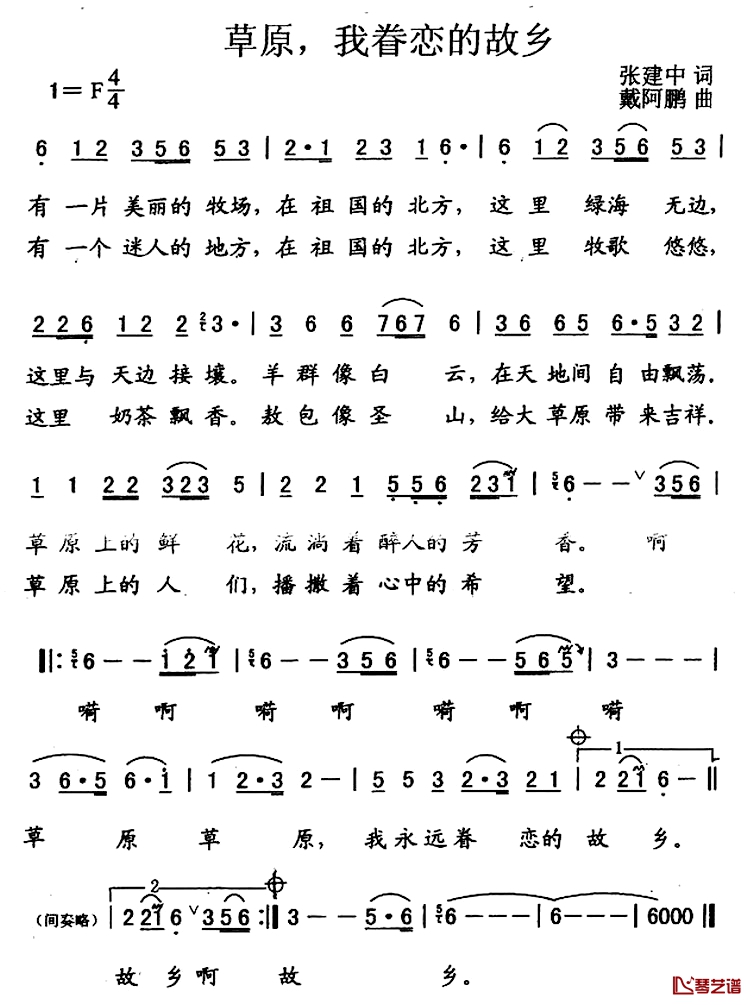 草原，我眷恋的故乡
1=F 4/4
张建中 词
戴阿鹏 曲
6 12 356 53 | 2·1 23 12 6· | 6 12 356 53 |
有一片美丽的牧场，在祖国的北方，这里绿海无边，
有一个迷人的地方，在祖国的北方，这里牧歌悠悠，
226 12 2 3· | 3 6 6 767 6 | 36 65 6·5 32 |
这里与天边接壤。羊群像白云，在天地间自由飘荡．
这里奶茶飘香。敖包像圣山，给大草原带来吉祥．
1 1 22 323 5 | 2 2 1 556 231 | 6-- 356 |
草原上的鲜花，流淌着醉人的芳香。啊
草原上的人们，播撒着心中的希望。
‖: 6-- 121 | 6-- 356 | 6-- 565 | 3--- |
嗬啊嗬啊嗬啊嗬
3 6·5 6·1 | 1 2·3 2- | 5 5 3 2·3 21 | 1 2 21 6- ‖
草原草原，我永远眷恋的故乡。
2
（间奏略） | 2 21 6 356 :‖ 3-- 5·6 | 6--- | 6--- | 6000 ‖
故乡啊故乡。
琴艺谱